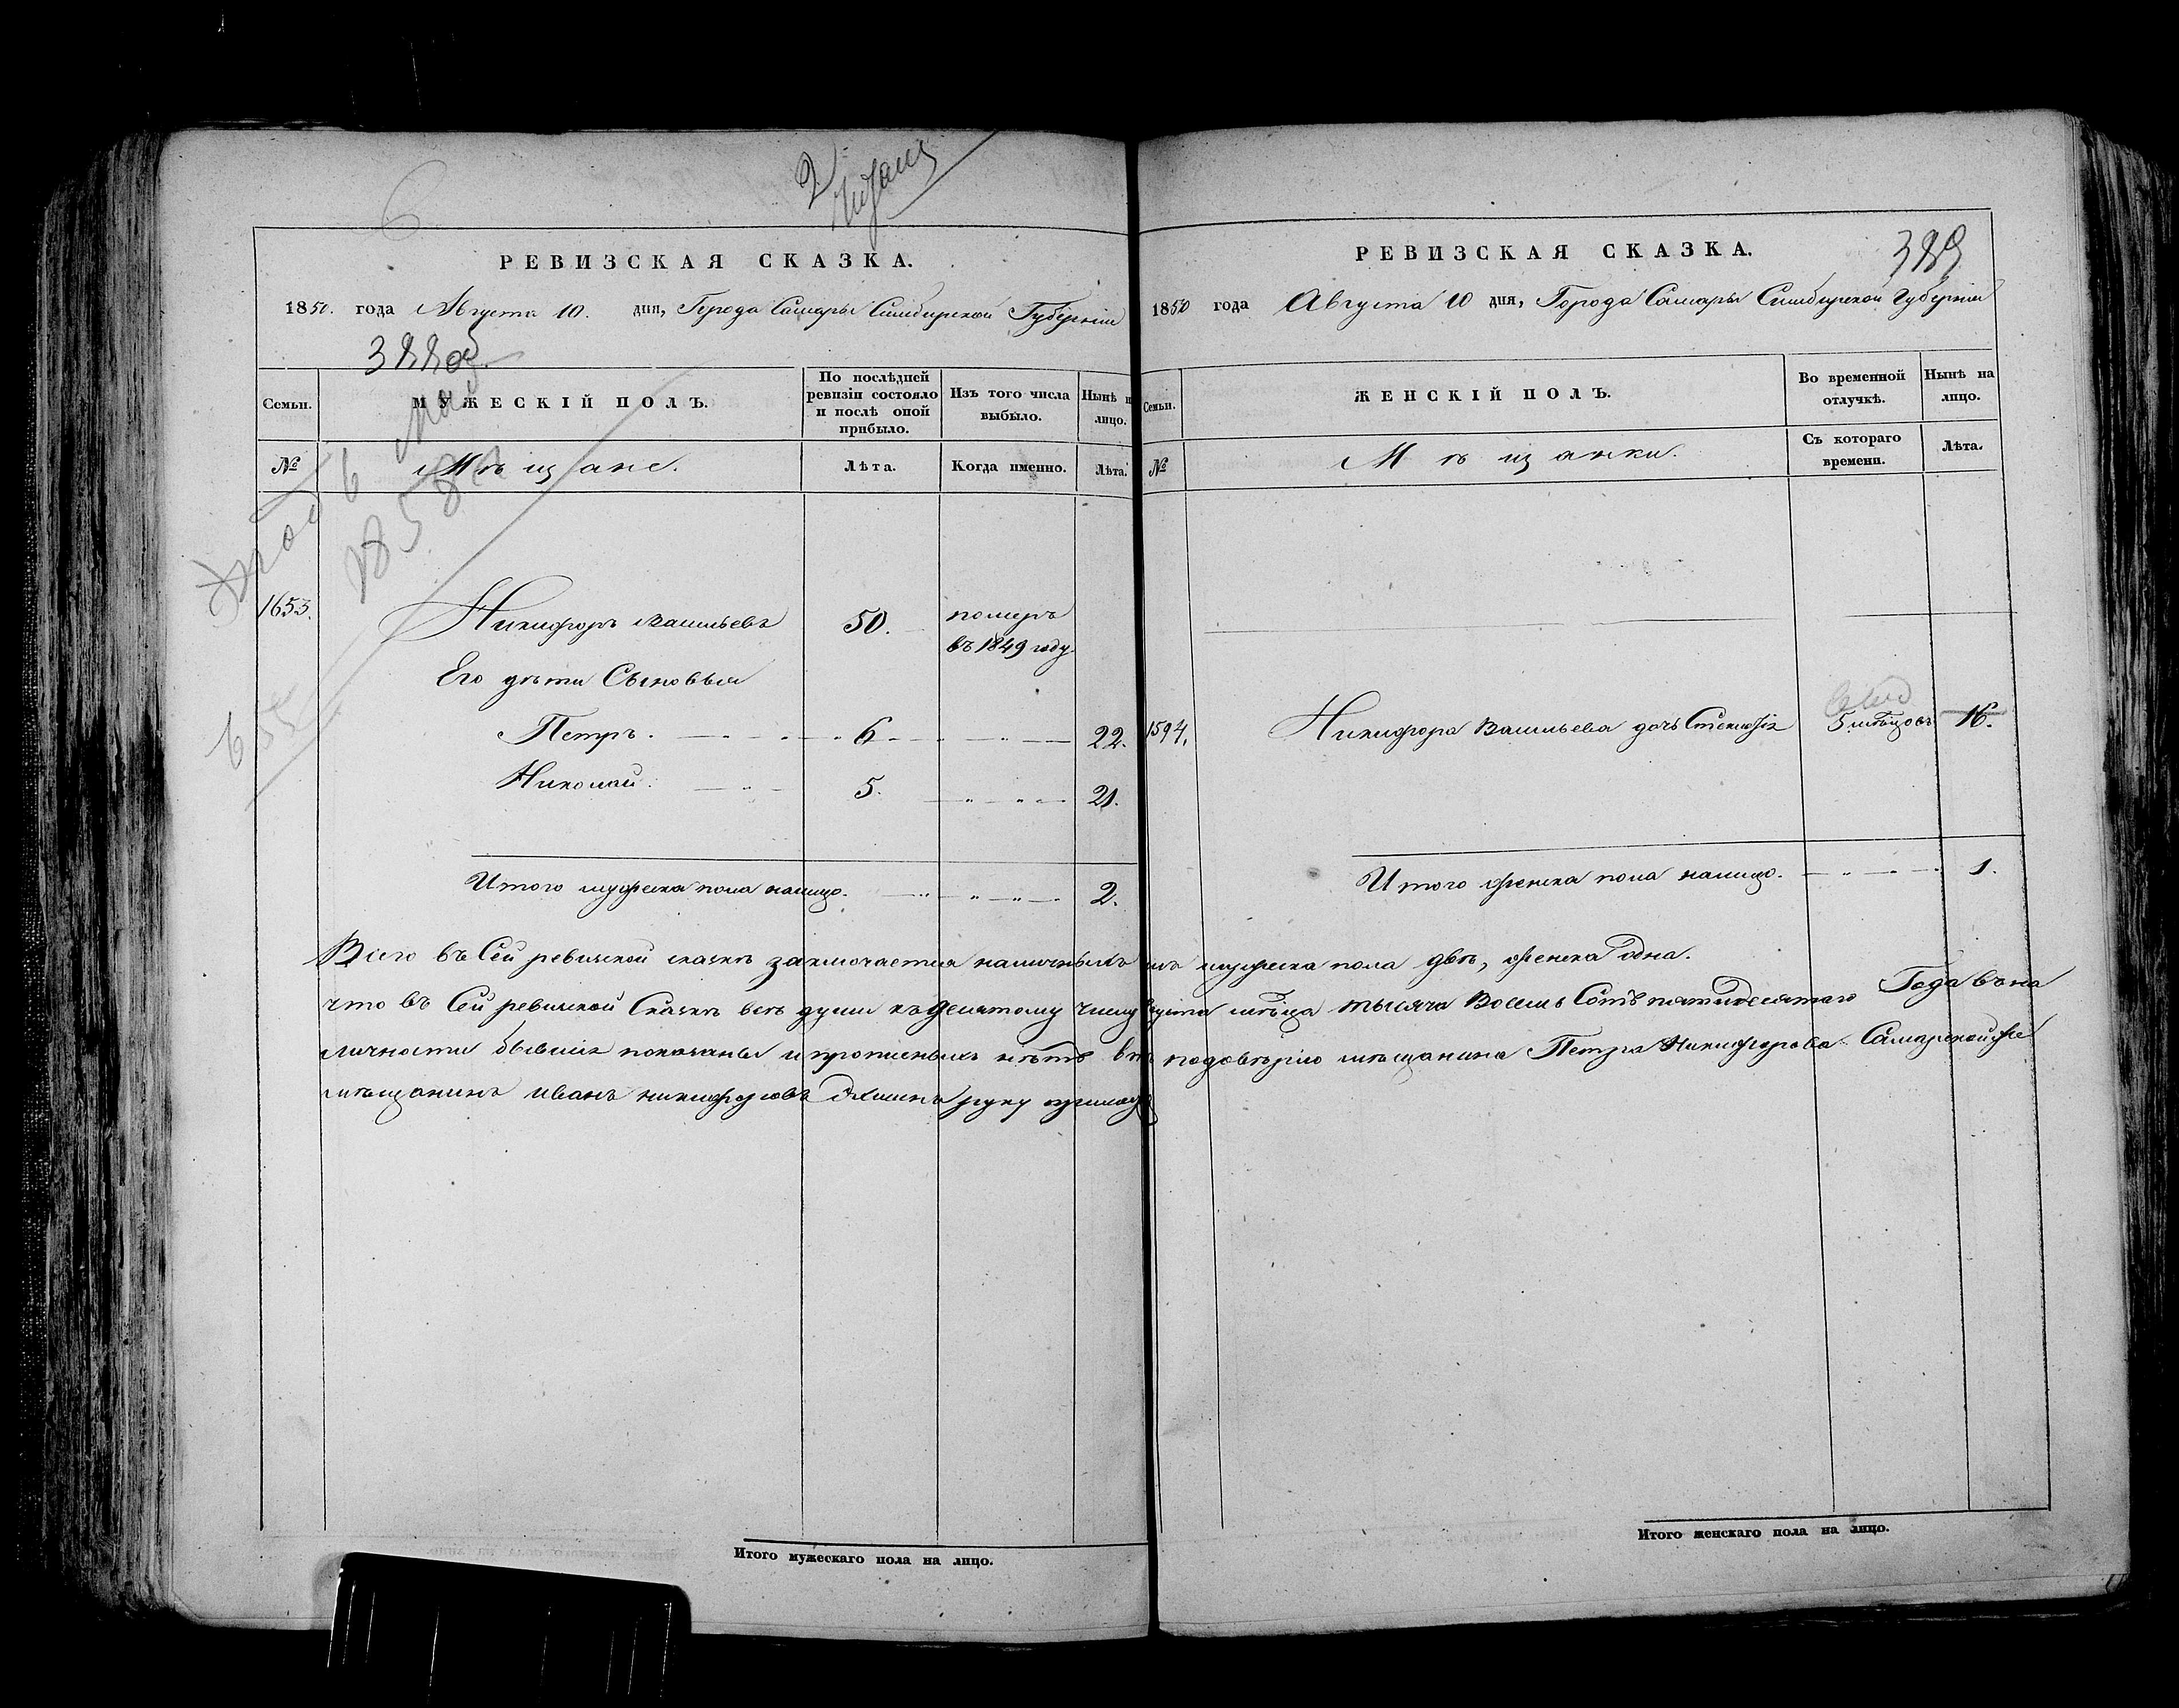 6
2
РЕВИЗСКАЯ СКАЗКА.
1850. года Августа 10. дня, Города Самары Симбирской Губерніи
388 об.
Семьи.
МУЖЕСКІЙ ПОЛЪ.
По послѣдней ревизіи состояло и послѣ оной прибыло.
Изъ того числа выбыло.
Нынѣ н лицо.
№
Мѣщане.
Лѣта.
Когда именно.
Лѣта.
6 Мая
1858
1653.
Никифоръ Васильевъ
50.
померъ
въ 1849 году.
Его дѣти Сыновья
Петръ.
6
22.
Николай.
5.
21.
Итого мужеска пола налицо.
2.
РЕВИЗСКАЯ СКАЗКА.
389
1850 года Августа 10 дня, Города Самары Симбирской Губерніи
Семьи.
ЖЕНСКІЙ ПОЛЪ.
Во временной отлучкѣ.
Нынѣ на лицо.
№
Мѣщанки.
Съ котораго времени.
Лѣта.
1594.
Никифора Васильева дочь
5 мѣсцовъ
16.
Итого женска пола налицо.
1.
Всего въ Сей ревиской сказкѣ заключается наличныхъ мужеска пола двѣ, женска одна.
что въ Сей ревиской Сказкѣ всѣ души къ десятому числу Августа мѣсца тысяча Восемь Сотъ пятидесятаго Года въ на
личности бывшія показаны и прописныхъ нѣтъ въ подовѣрію мѣщанина Петра Никифорова Самарской же
мѣщанинъ иванъ никифоровъ руку
Итого мужескаго пола на лицо.
Итого женскаго пола на лицо.